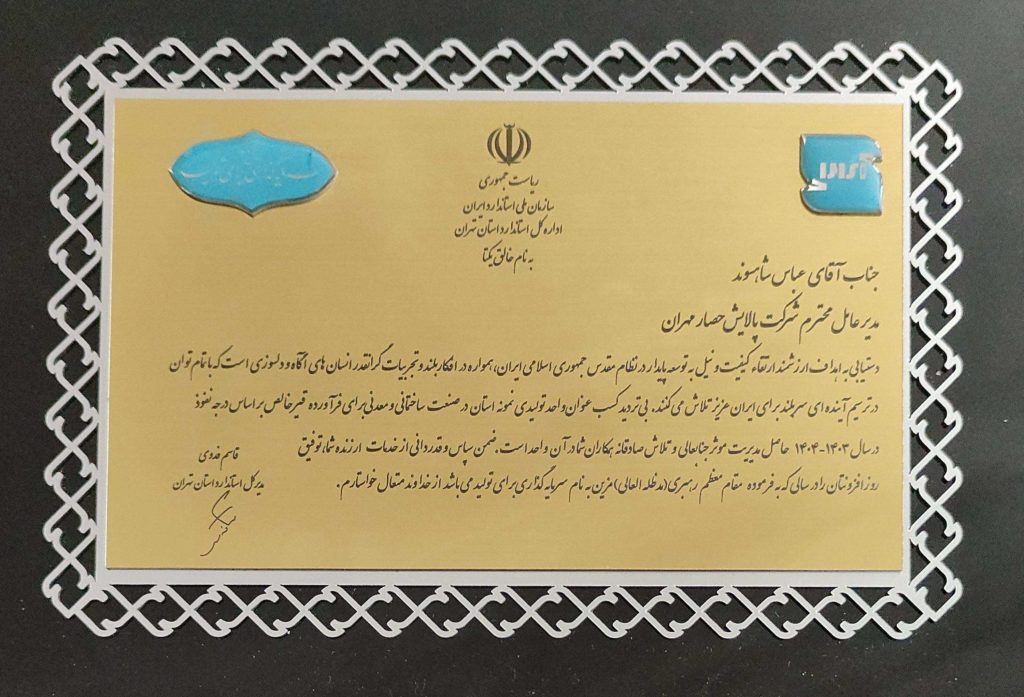 ریاست جمهوری
سازمان ملی استاندارد ایران
اداره کل استاندارد استان تهران
به نام خالق یکتا
جناب آقای عباس شاهسوند
مدیر عامل محترم شرکت پالایش حصار مهران
دستیابی به اهداف ارزشمند ارتقاء کیفیت و نیل به توسعه پایدار در نظام مقدس جمهوری اسلامی ایران، همواره در افکار بلند و تجربیات گرانقدر انسان های آگاه و دلسوزی است که با تمام توان
در ترسیم آینده ای سربلند برای ایران عزیز تلاش می کنند. بی تردید کسب عنوان واحد تولیدی نمونه استان در صنعت ساختمانی و معدنی برای فرآورده قیر خالص بر اساس درجه نفوذ
در سال ۱۴۰۳-۱۴۰۴ حاصل مدیریت موثر جنابعالی و تلاش صادقانه همکاران شما در آن واحد است. ضمن سپاس و قدردانی از خدمات ارزنده شما، توفیق
روز افزونتان را در سالی که به فرموده مقام معظم رهبری (مدظله العالی) مزین به نام سرمایه گذاری برای تولید می باشد از خداوند متعال خواستارم.
قاسم فدوی
مدیرکل استاندارد استان تهران